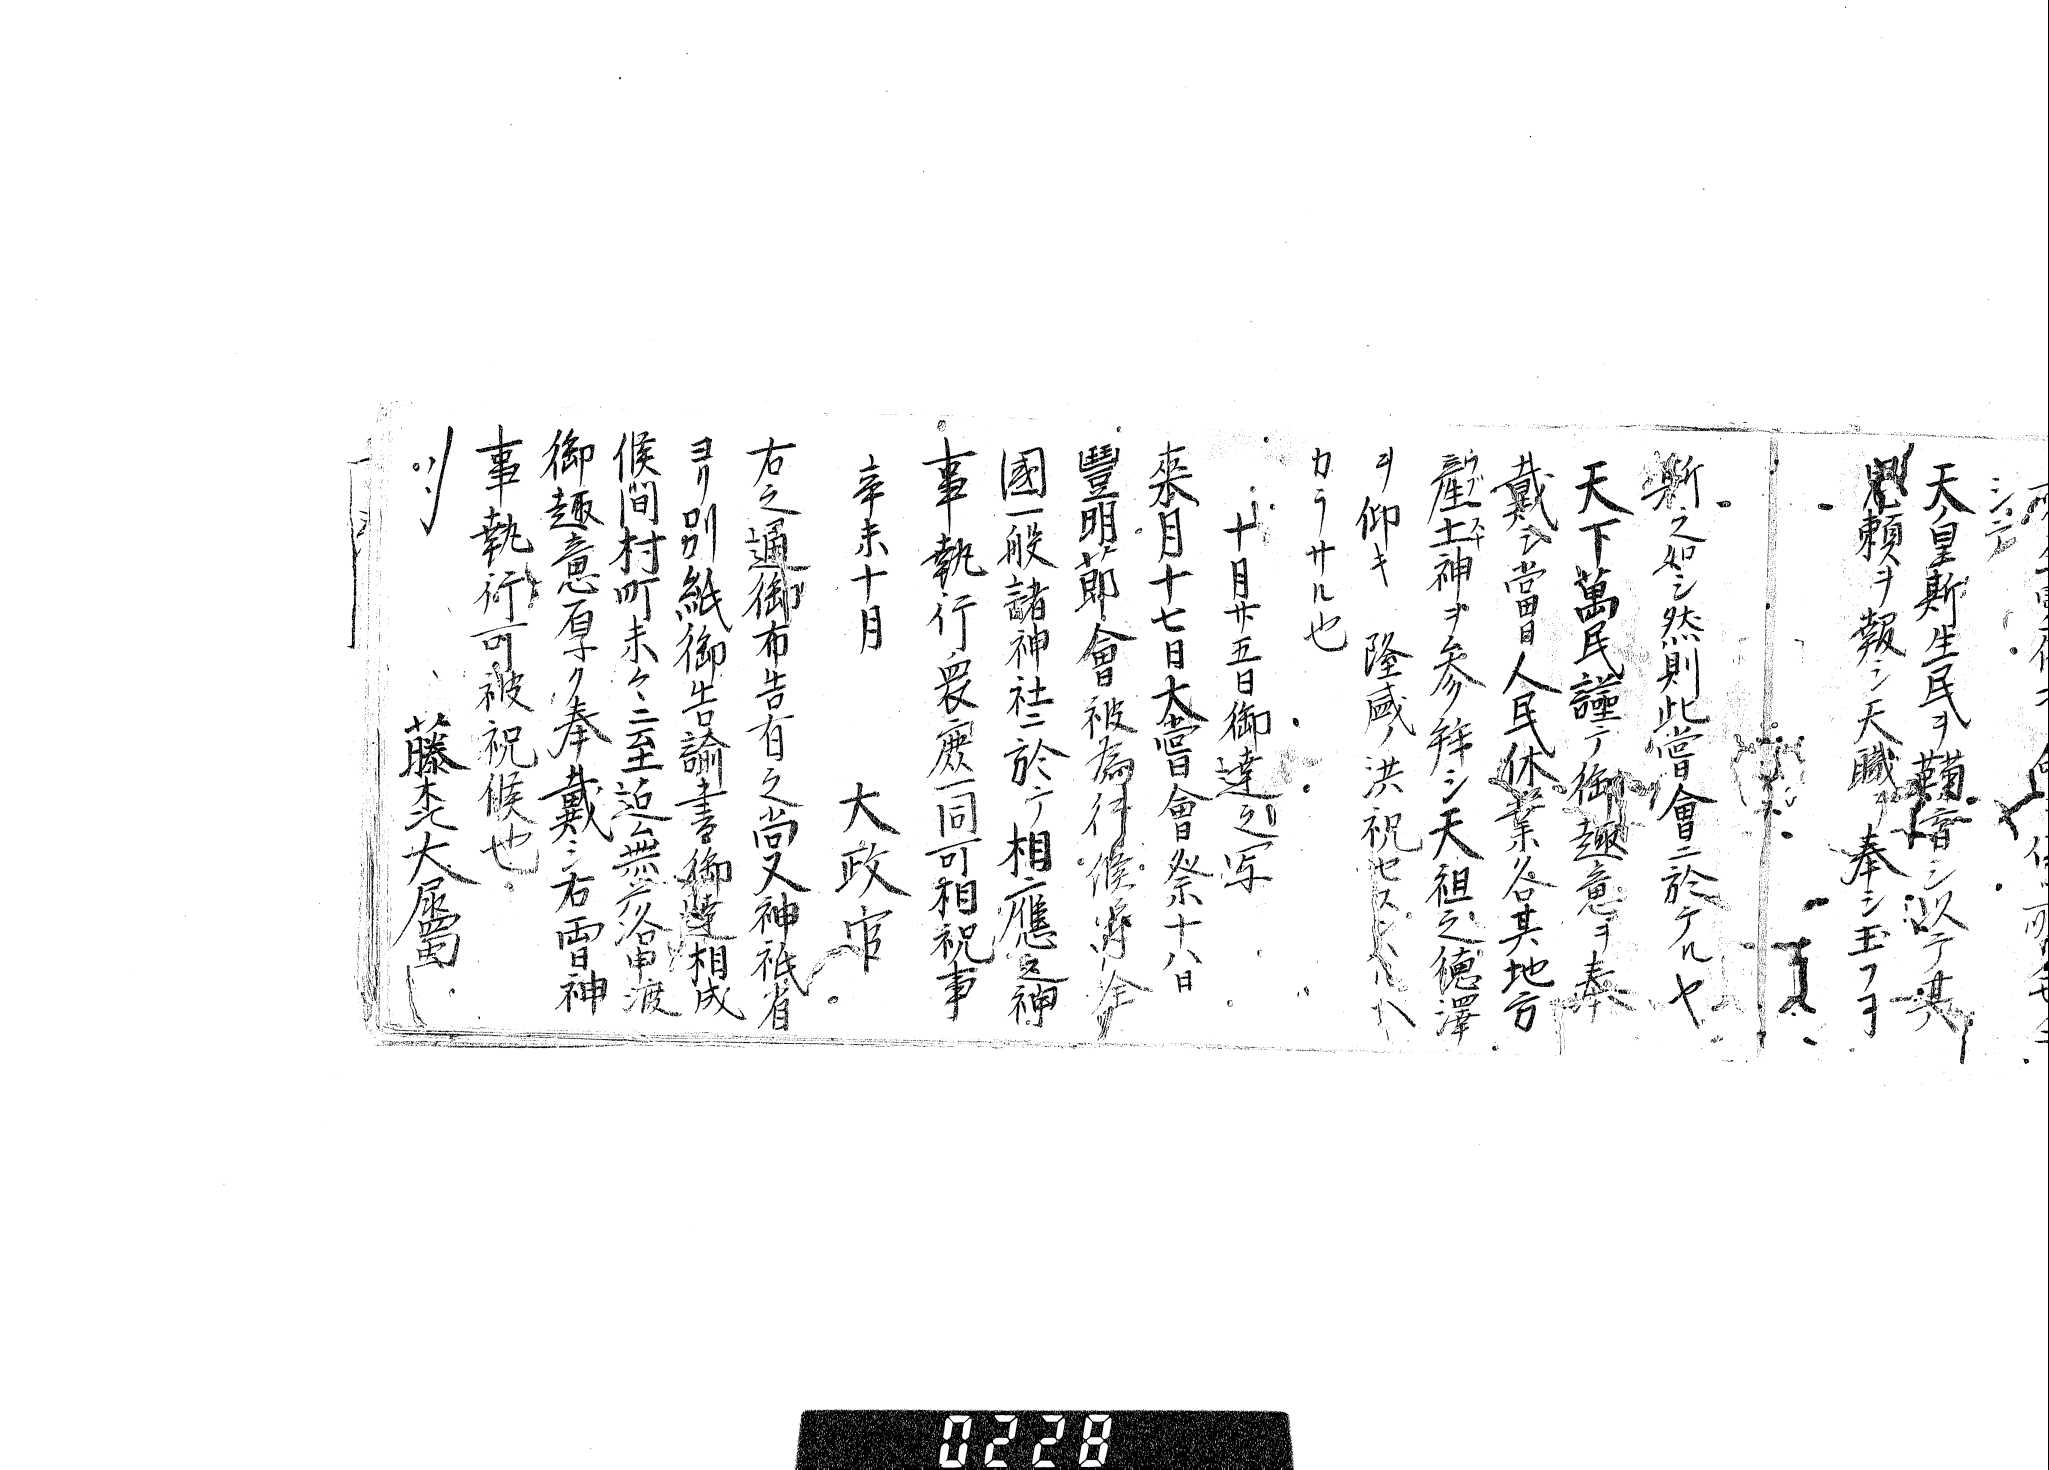 シテ
天皇斯生民ヲ鞠育シ以テ其
恩頼ヲ報シ天職ヲ奉シ玉フヿ
斯之如シ然則此嘗會ニ於ケルヤ
天下萬民謹テ御趣意ヲ奉
戴シ當日人民休業各其地方
産土神ヲ参拜シ天祖之德澤
ヲ仰キ 隆盛ノ洪祝セスンハアル
カラサル也
十月廿五日御達之写
来月十七日大嘗會祭十八日
豐明節會被為行候ニ付全
國一般諸神社ニ於テ相應之神
事執行衆庶一同可相祝事
辛未十月 大政官
右之通御布告有之尚又神祇省
ヨリ別紙御告諭書御達相成
候間村町末々ニ至迄無落申渡
御趣意厚ク奉戴シ右両日神
事執行可被祝候也
藤木北大属
0228